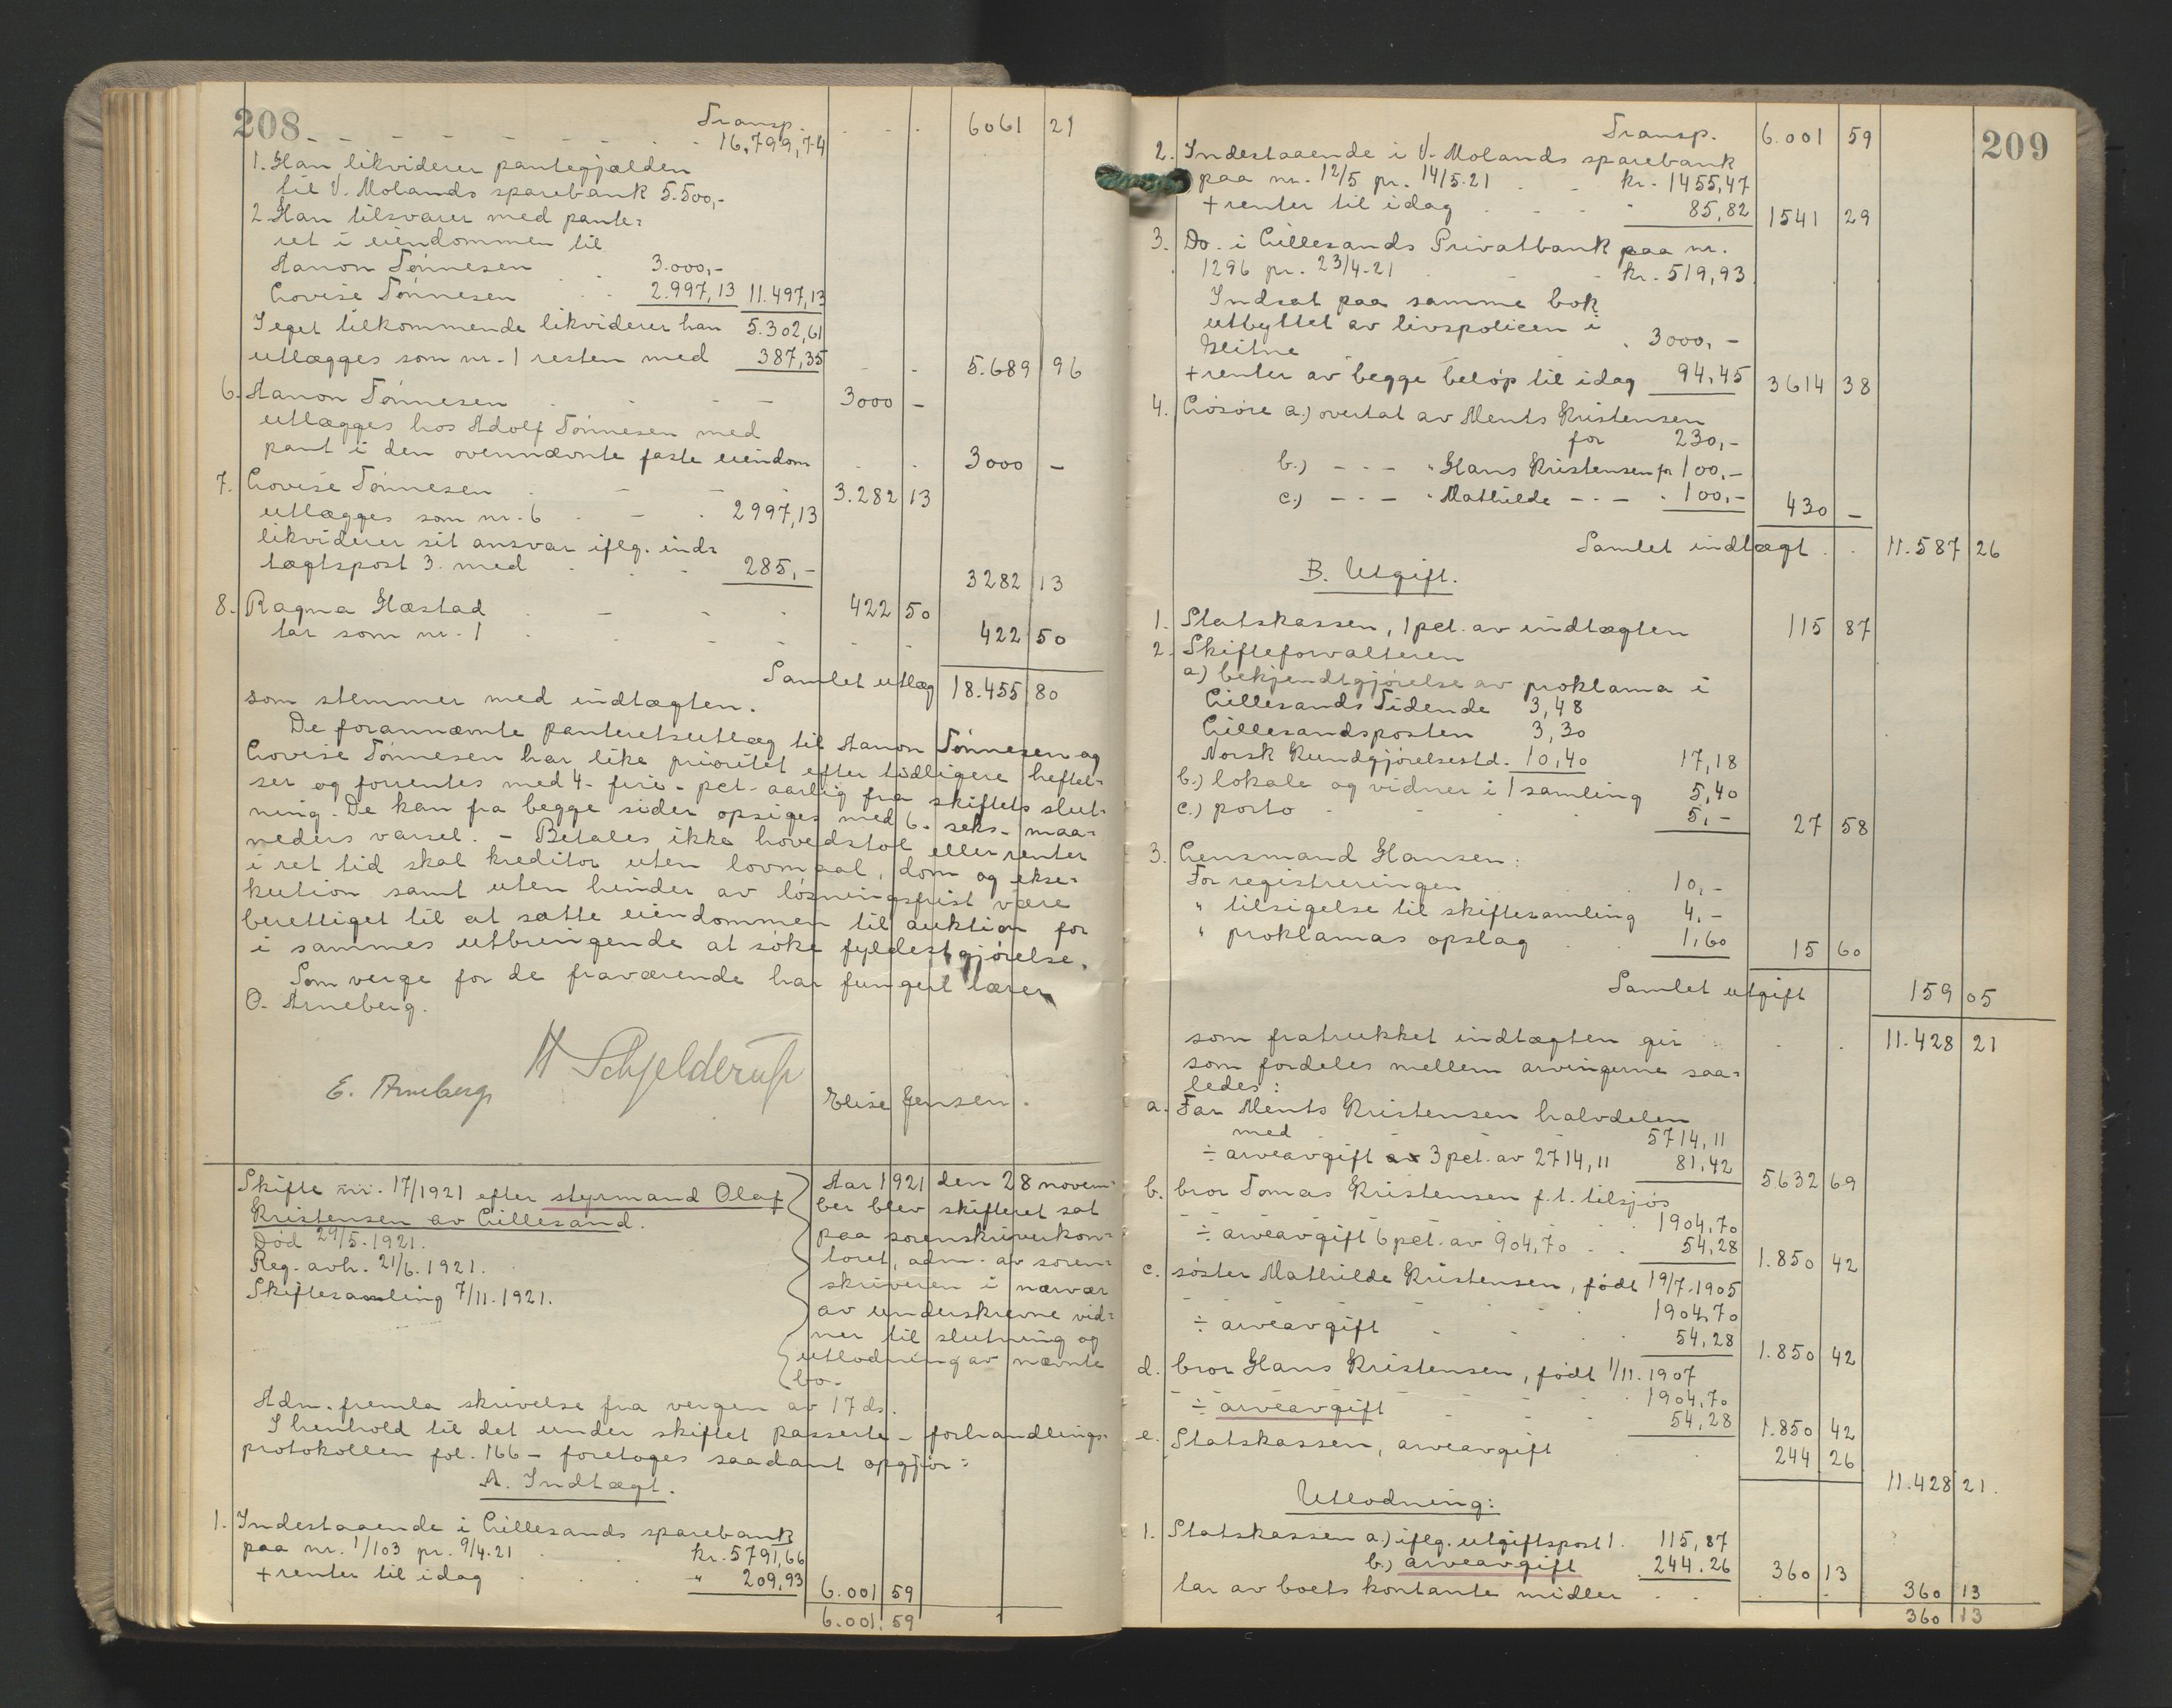 208
Transp. 6061 21
16.799,74
1. Han likviderer pantegjælden
til V. Molands sparebank 5.500,-
2. Han tilsvarer med pante=
ret i eiendommen til
Aanon Tönnesen 3.000,-
Lovise Tönnesen 2.997,13 11.497,13
I eget tilkommende likviderer han 5.302,61
utlægges som nr. 1 resten med 387,35 5.689 96
6. Aanon Tönnesen 3000 -
utlægges hos Adolf Tönnesen med
pant i den ovennævnte faste eiendom 3000 -
7. Lovise Tönnesen 3.282 13
utlægges som nr. 6 2997,13
likviderer sit ansvar iflg. ind=
tægtspost 3. med 285,- 3282 13
8. Ragna Hæstad 422 50
tar som nr. 1 422 50
Samlet utlæg 18.455 80
som stemmer med indtægten.
De forannævnte panteretsutlæg til Aanon Tönnesen og
Lovise Tönnesen har like prioritet efter tidligere heftel=
ser og forrentes med 4 - fire - pct. aarlig fra skiftets slut=
ning. De kan fra begge sider opsiges med 6 - seks - maa=
neders varsel. - Betales ikke hovedstol eller renter
i ret tid skal kreditor uten lovmaal, dom og ekse=
kution samt uten hinder av løsningsfrist være
berettiget til at sætte eiendommen til auktion for
i sammes utbringende at søke fyldestgjørelse.
Som verge for de fraværende har fungert lærer
O. Arneberg.
H Schjelderup
E. Arneberg Elise Jensen.
Skifte nr. 17/1921 efter styrmand Olaf
Kristensen av Lillesand.
Död 29/5. 1921.
Reg. avh. 21/6. 1921.
Skiftesamling 7/11. 1921.
Aar 1921 den 28 novem=
ber blev skifteret sat
paa sorenskriverkon=
toret, adm. av soren=
skriveren i nærvær
av underskrevne vid=
ner til slutning og
utlodning av nævnte
bo.
Adm. fremla skrivelse fra vergen av 17 ds.
I henhold til det under skiftet passerte - forhandlings=
protokollen fol. 166 - foretoges saadant opgjør:
A. Indtægt.
1. Indestaaende i Lillesands sparebank
paa nr. 1/103 pr. 9/4.21 kr. 5791,66
+ renter til idag " 209,93 6.001 59
6.001. 59
209
Transp. 6.001 59
2. Indestaaende i V. Molands sparebank
paa nr. 12/5 pr. 14/5.21 kr. 1455,47
+ renter til idag " 85,82 1541 29
3. Do. i Lillesands Privatbank paa nr.
1296 pr. 23/4-21 kr. 519,93
Indsat paa samme bok
utbyttet av livspolicen i
Glitne 3000,-
+ renter av begge beløp til idag 94,45 3614 38
4. Løsøre a.) overtat av Ments Kristensen
for 230,-
b.) - - - " Hans Kristensen fr 100,-
c.) - - - " Mathilde - - - 100,- 430 -
Samlet indtægt 11.587 26
B. Utgift.
1. Statskassen, 1 pct. av indtægten 115 87
2. Skifteforvalteren
a) bekjendtgjørelse av proklama i
Lillesands Tidende 3,48
Lillesandsposten 3,30
Norsk Kundgjørelsestd. 10,40 17,18
b.) lokale og vidner i 1 samling 5,40
c.) porto 5,- 27 58
3. Lensmand Hansen:
For registreringen 10,-
" tilsigelse til skiftesamling 4,-
" proklamas opslag 1,60 15 60
Samlet utgift 159 05
som fratrukket indtægten gir 11.428 21
som fordeles mellem arvingerne saa=
ledes:
a. Far Ments Kristensen halvdelen
med 5714,11
÷ arveavgift 3 pct. av 2714,11 81,42 5632 69
b. bror Tomas Kristensen f.t. tilsjøs
1904,70
÷ arveavgift 6 pct. av 904,70 54,28 1.850 42
c. søster Mathilde Kristensen, født 19/7.1905
1904,70
÷ arveavgift 54,28 1.850 42
d. bror Hans Kristensen, født 1/11. 1907
1904,70
÷ arveavgift 54,28 1.850 42
e. Statskassen, arveavgift 244 26
11.428 21.
Utlodning:
1. Statskassen a.) iflg. utgiftspost 1. 115,87
b.) arveavgift 244.26 360 13
tar av boets kontante midler 360 13
360 13